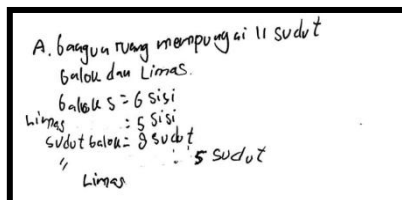 A. bangun ruang mempunyai 11 sudut
balok dan Limas.
balok s = 6 sisi
Limas : 5 sisi
sudut balok = 8 sudut
" Limas : 5 sudut